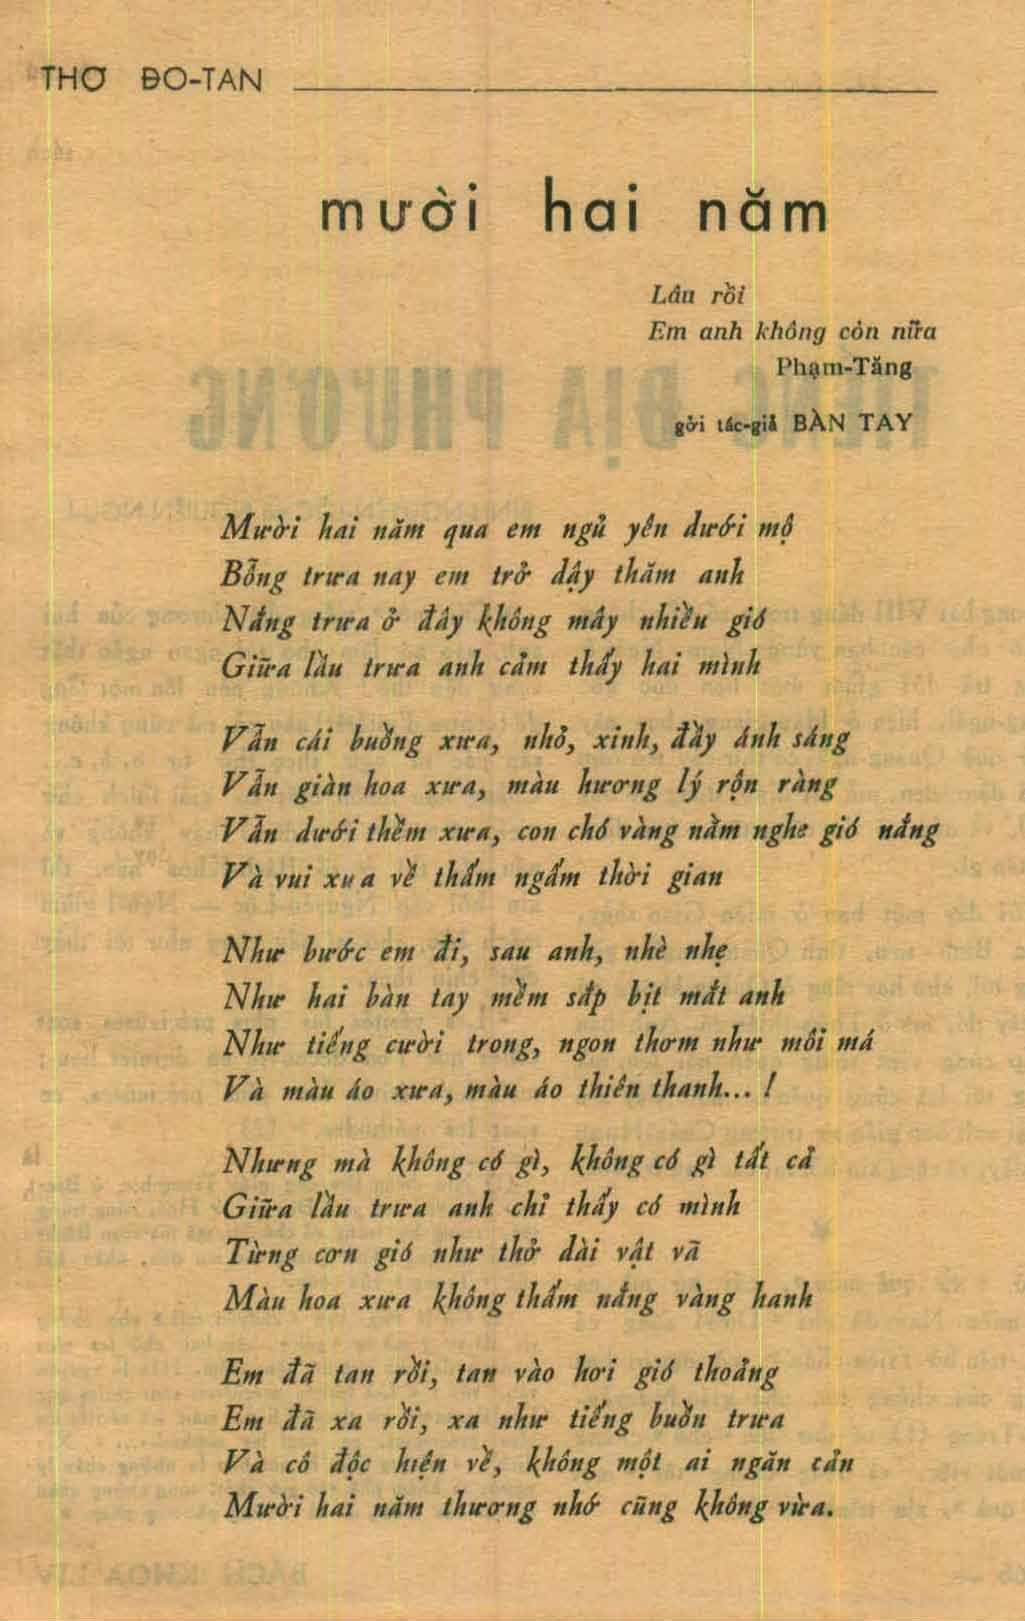 THƠ ĐO-TAN
mười hai năm
Lâu rồi
Em anh không còn nữa
Phạm-Tăng
gởi tác-giả BÀN TAY
Mười hai năm qua em ngủ yên dưới mộ
Bỗng trưa nay em trở dậy thăm anh
Nắng trưa ở đây không mây nhiều gió
Giữa lầu trưa anh cảm thấy hai mình
Vẫn cái buồng xưa, nhỏ, xinh, đầy ánh sáng
Vẫn giàn hoa xưa, màu hương lý rộn ràng
Vẫn dưới thềm xưa, con chó vàng nằm nghe gió nắng
Và vui xưa về thấm ngấm thời gian
Như bước em đi, sau anh, nhè nhẹ
Như hai bàn tay mềm sắp bịt mắt anh
Như tiếng cười trong, ngon thơm như môi má
Và màu áo xưa, màu áo thiên thanh... !
Nhưng mà không có gì, không có gì tất cả
Giữa lầu trưa anh chỉ thấy có mình
Từng cơn gió như thở dài vật vã
Màu hoa xưa không thắm nắng vàng hanh
Em đã tan rồi, tan vào hơi gió thoảng
Em đã xa rồi, xa như tiếng buồn trưa
Và cô độc hiện về, không một ai ngăn cản
Mười hai năm thương nhớ cũng không vừa.